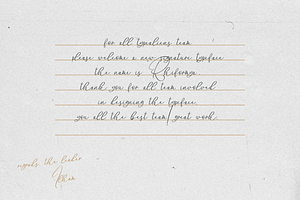 for all typaliens team
please welcome a new signature typeface
the name is Rhiforma.
thank you for all team involved
in designing the typeface.
you all the best team, great work.
regards, the leader
Ilham